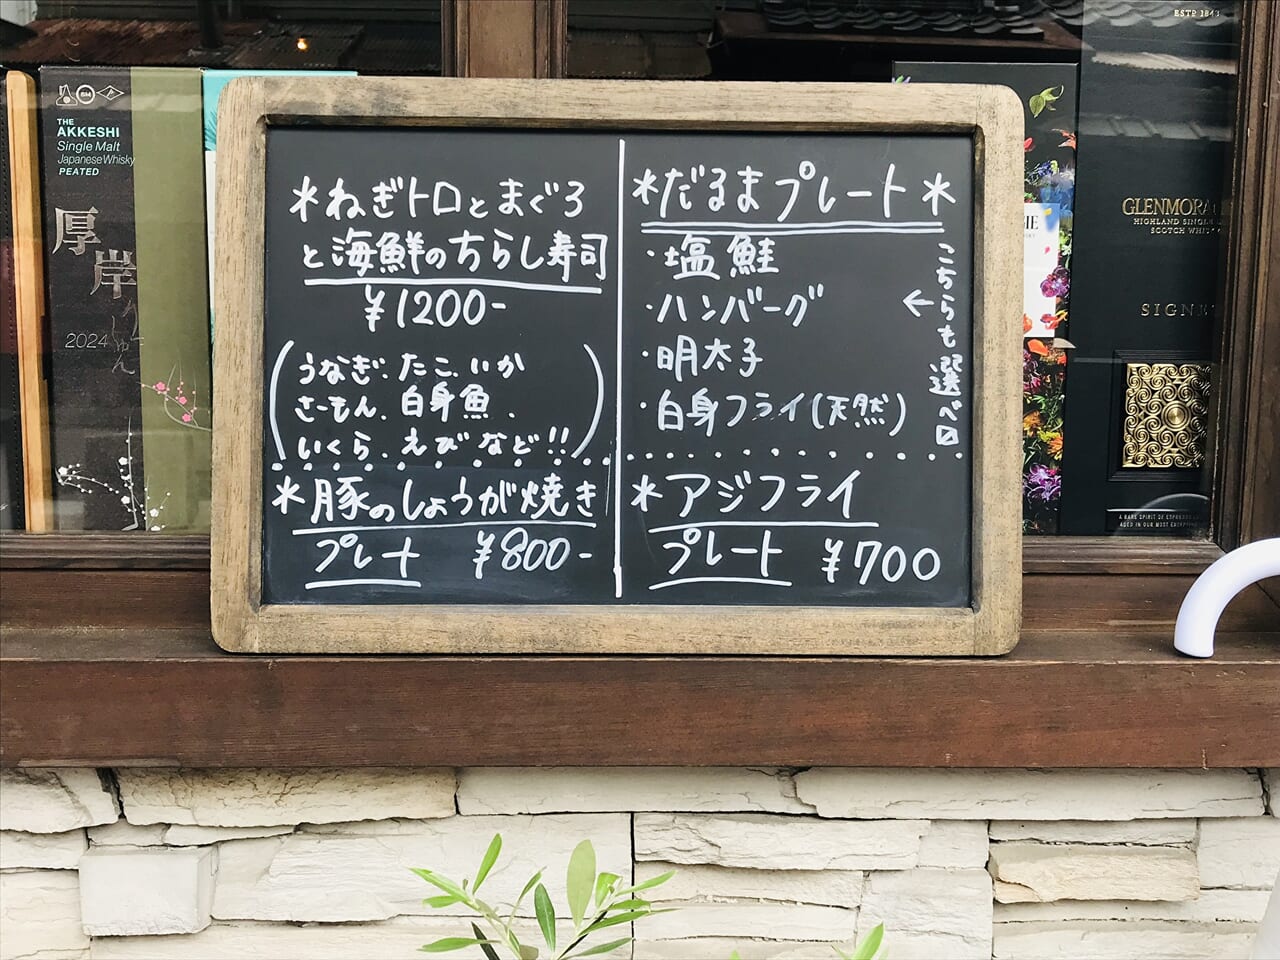 ＊ねぎトロとまぐろ
と海鮮のちらし寿司
¥1200-
うなぎ、たこ、いか
さーもん、白身魚、
いくら、えびなど!!
＊豚のしょうが焼き
プレート ¥800-
＊だるまプレート＊
・塩鮭
・ハンバーグ
・明太子
・白身フライ(天然)
←こちらも選べ〼
＊アジフライ
プレート ¥700
THE
AKKESHI
Single Malt
Japanese Whisky
PEATED
厚岸
2024
ESTD 1843
HIGHLAND SINGLE
SCOTCH WHI
SIGNE
A RARE SPIRIT OF
AGED IN OUR MOST